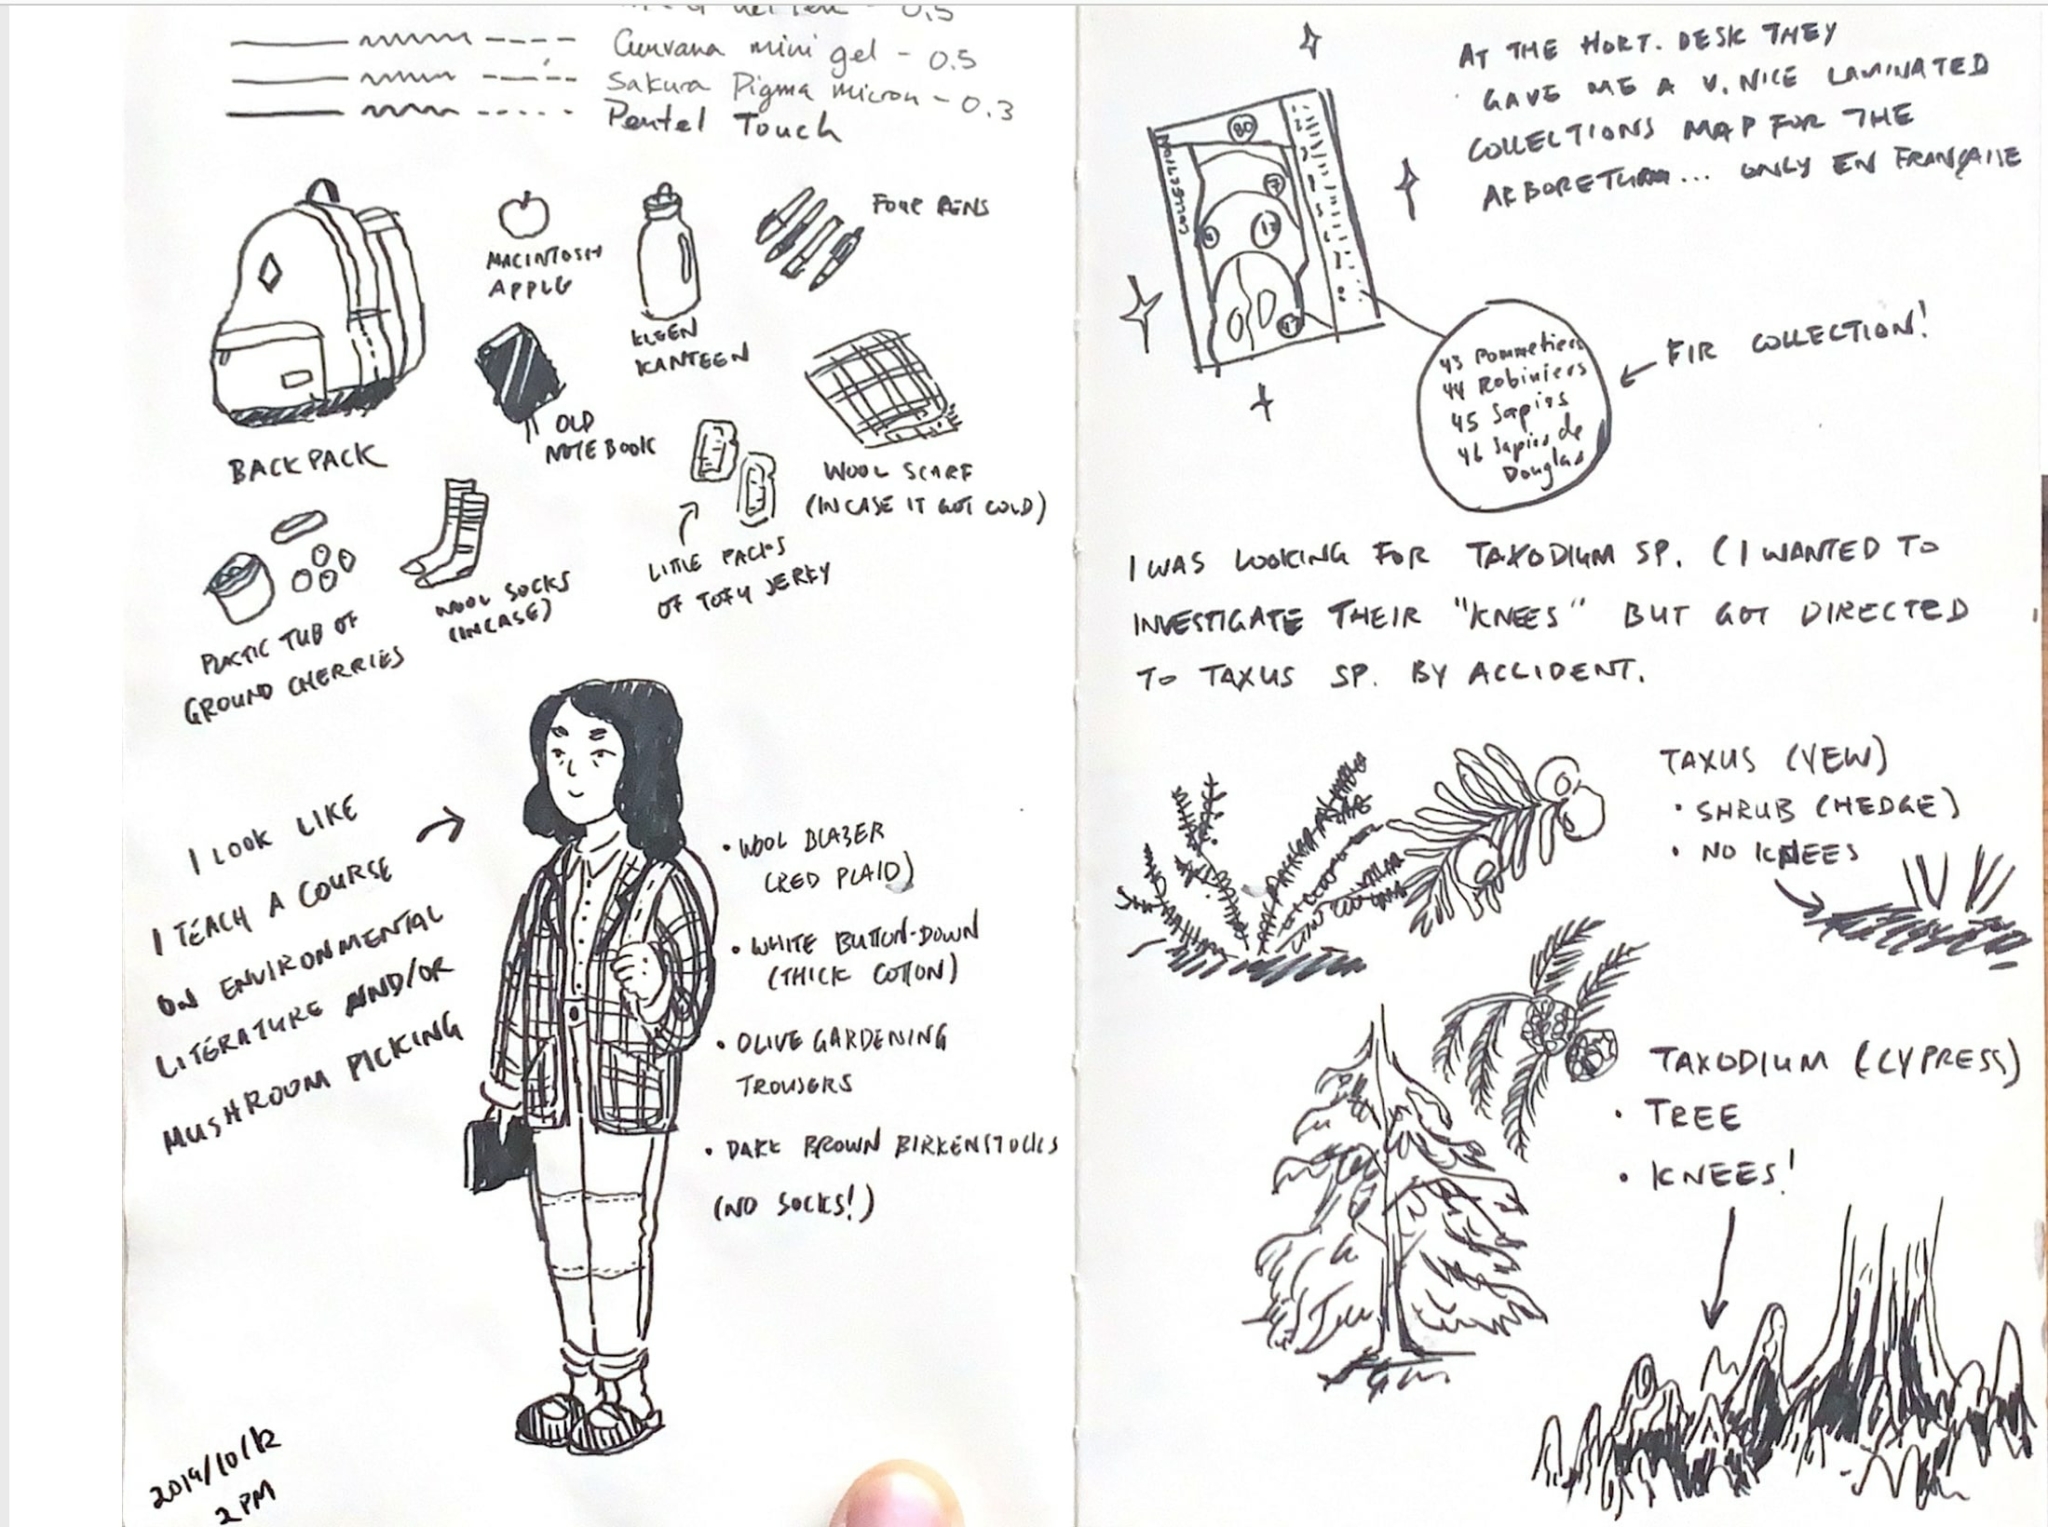 0.5
mini gel - 0.5
Sakura Pigma micron - 0.3
Pentel Touch
BACKPACK
MACINTOSH
APPLE
KLEEN
KANTEEN
FOUR PENS
OLD
NOTEBOOK
WOOL SCARF
(INCASE IT GOT COLD)
PLASTIC TUB OF
GROUND CHERRIES
WOOL SOCKS
(INCASE)
LITTLE PACKS
OF TOFU JERKY
I LOOK LIKE
I TEACH A COURSE
ON ENVIRONMENTAL
LITERATURE AND/OR
MUSHROOM PICKING
• WOOL BLAZER
(RED PLAID)
• WHITE BUTTON-DOWN
(THICK COTTON)
• OLIVE GARDENING
TROUSERS
• DARK BROWN BIRKENSTOCKS
(NO SOCKS!)
2019/10/12
2 PM
AT THE HORT. DESK THEY
GAVE ME A V. NICE LAMINATED
COLLECTIONS MAP FOR THE
ARBORETUM... ONLY EN FRANÇAISE
COLLECTION
80
7
9
12
47
43 Pommetiers
44 Robiniers
45 Sapins
46 Sapins de
Douglas
FIR COLLECTION!
I WAS LOOKING FOR TAXODIUM SP. (I WANTED TO
INVESTIGATE THEIR "KNEES" BUT GOT DIRECTED
TO TAXUS SP. BY ACCIDENT.
TAXUS (YEW)
• SHRUB (HEDGE)
• NO KNEES
TAXODIUM (CYPRESS)
• TREE
• KNEES!